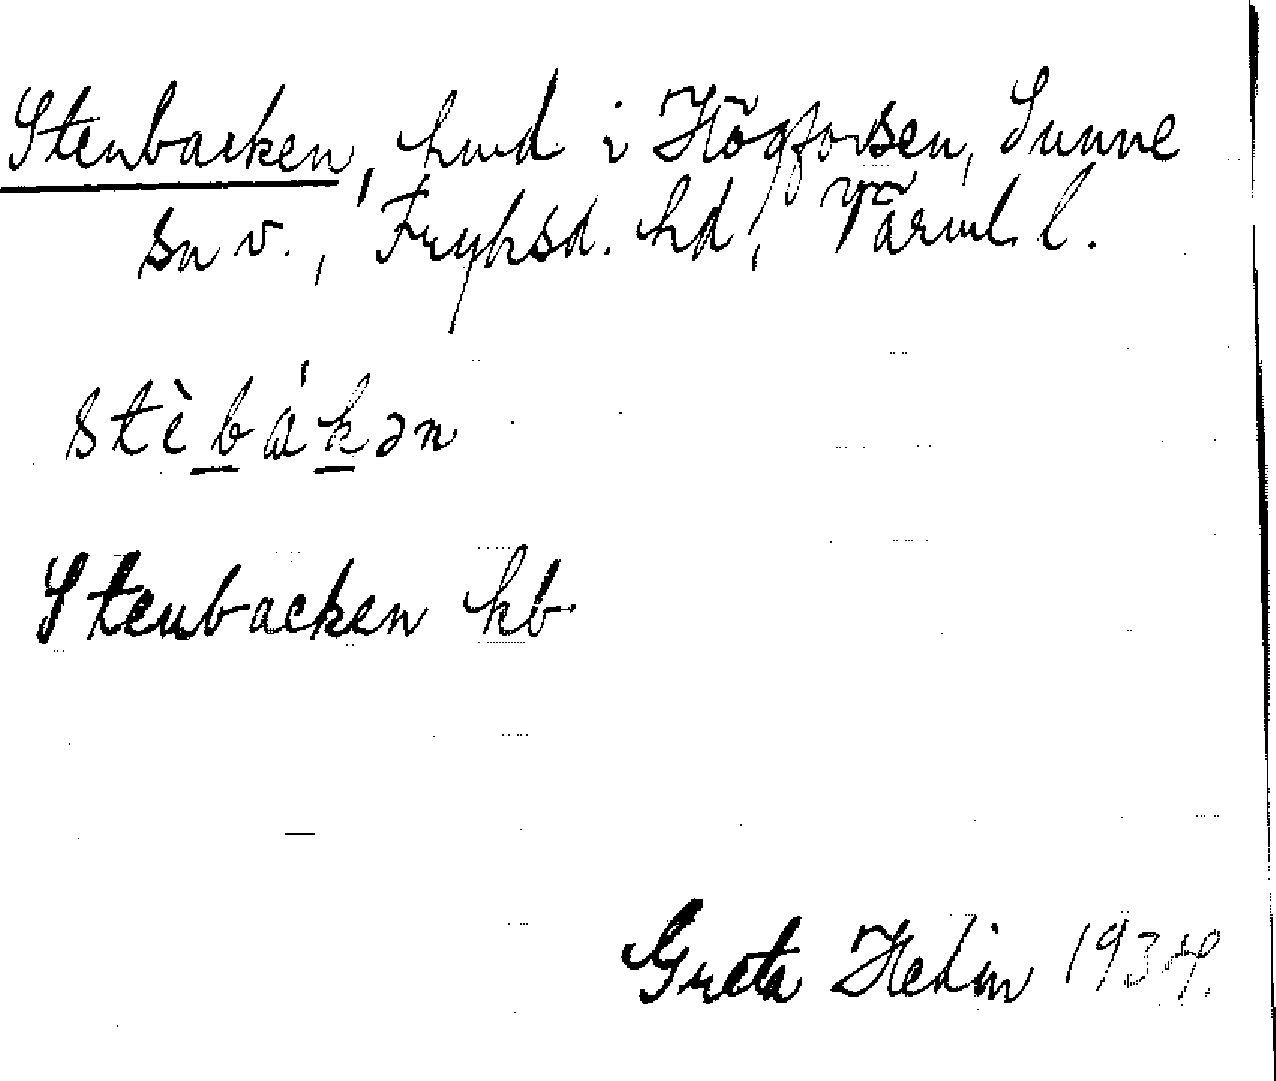 Stenbacken, hmd i Högforsen, Sunne
sn v., Fryksd. hd, Värml. l.
stèbákən
Stenbacken kb.
Greta Hedin 1934.